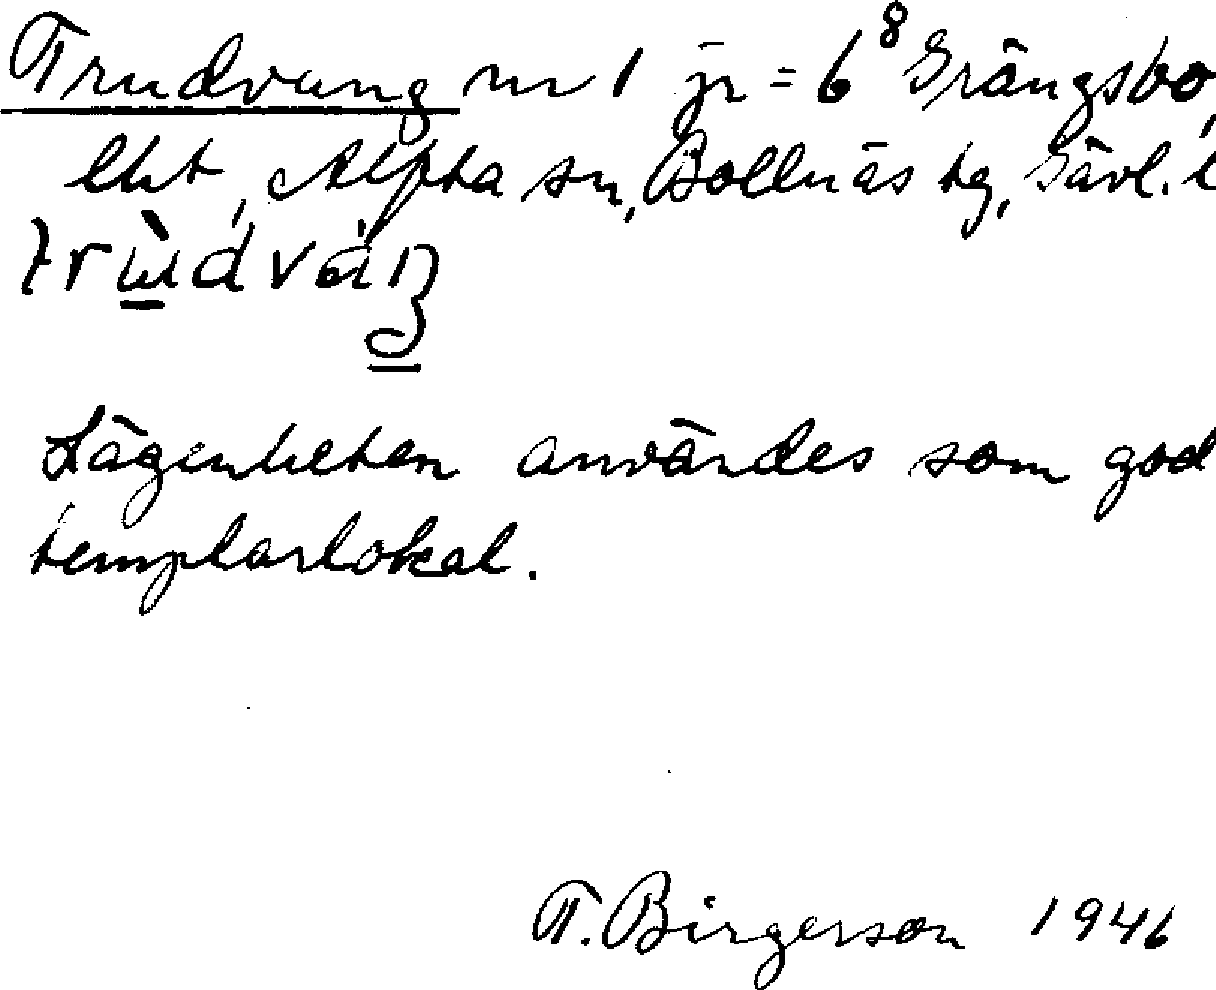 Trudvang nr 1 jr = 6⁸ Grängsbo,
lht, Alfta sn, Bollnäs tg, Gävl. l
trùdváŋ
Lägenheten användes som god
templarlokal.
T. Birgerson 1946